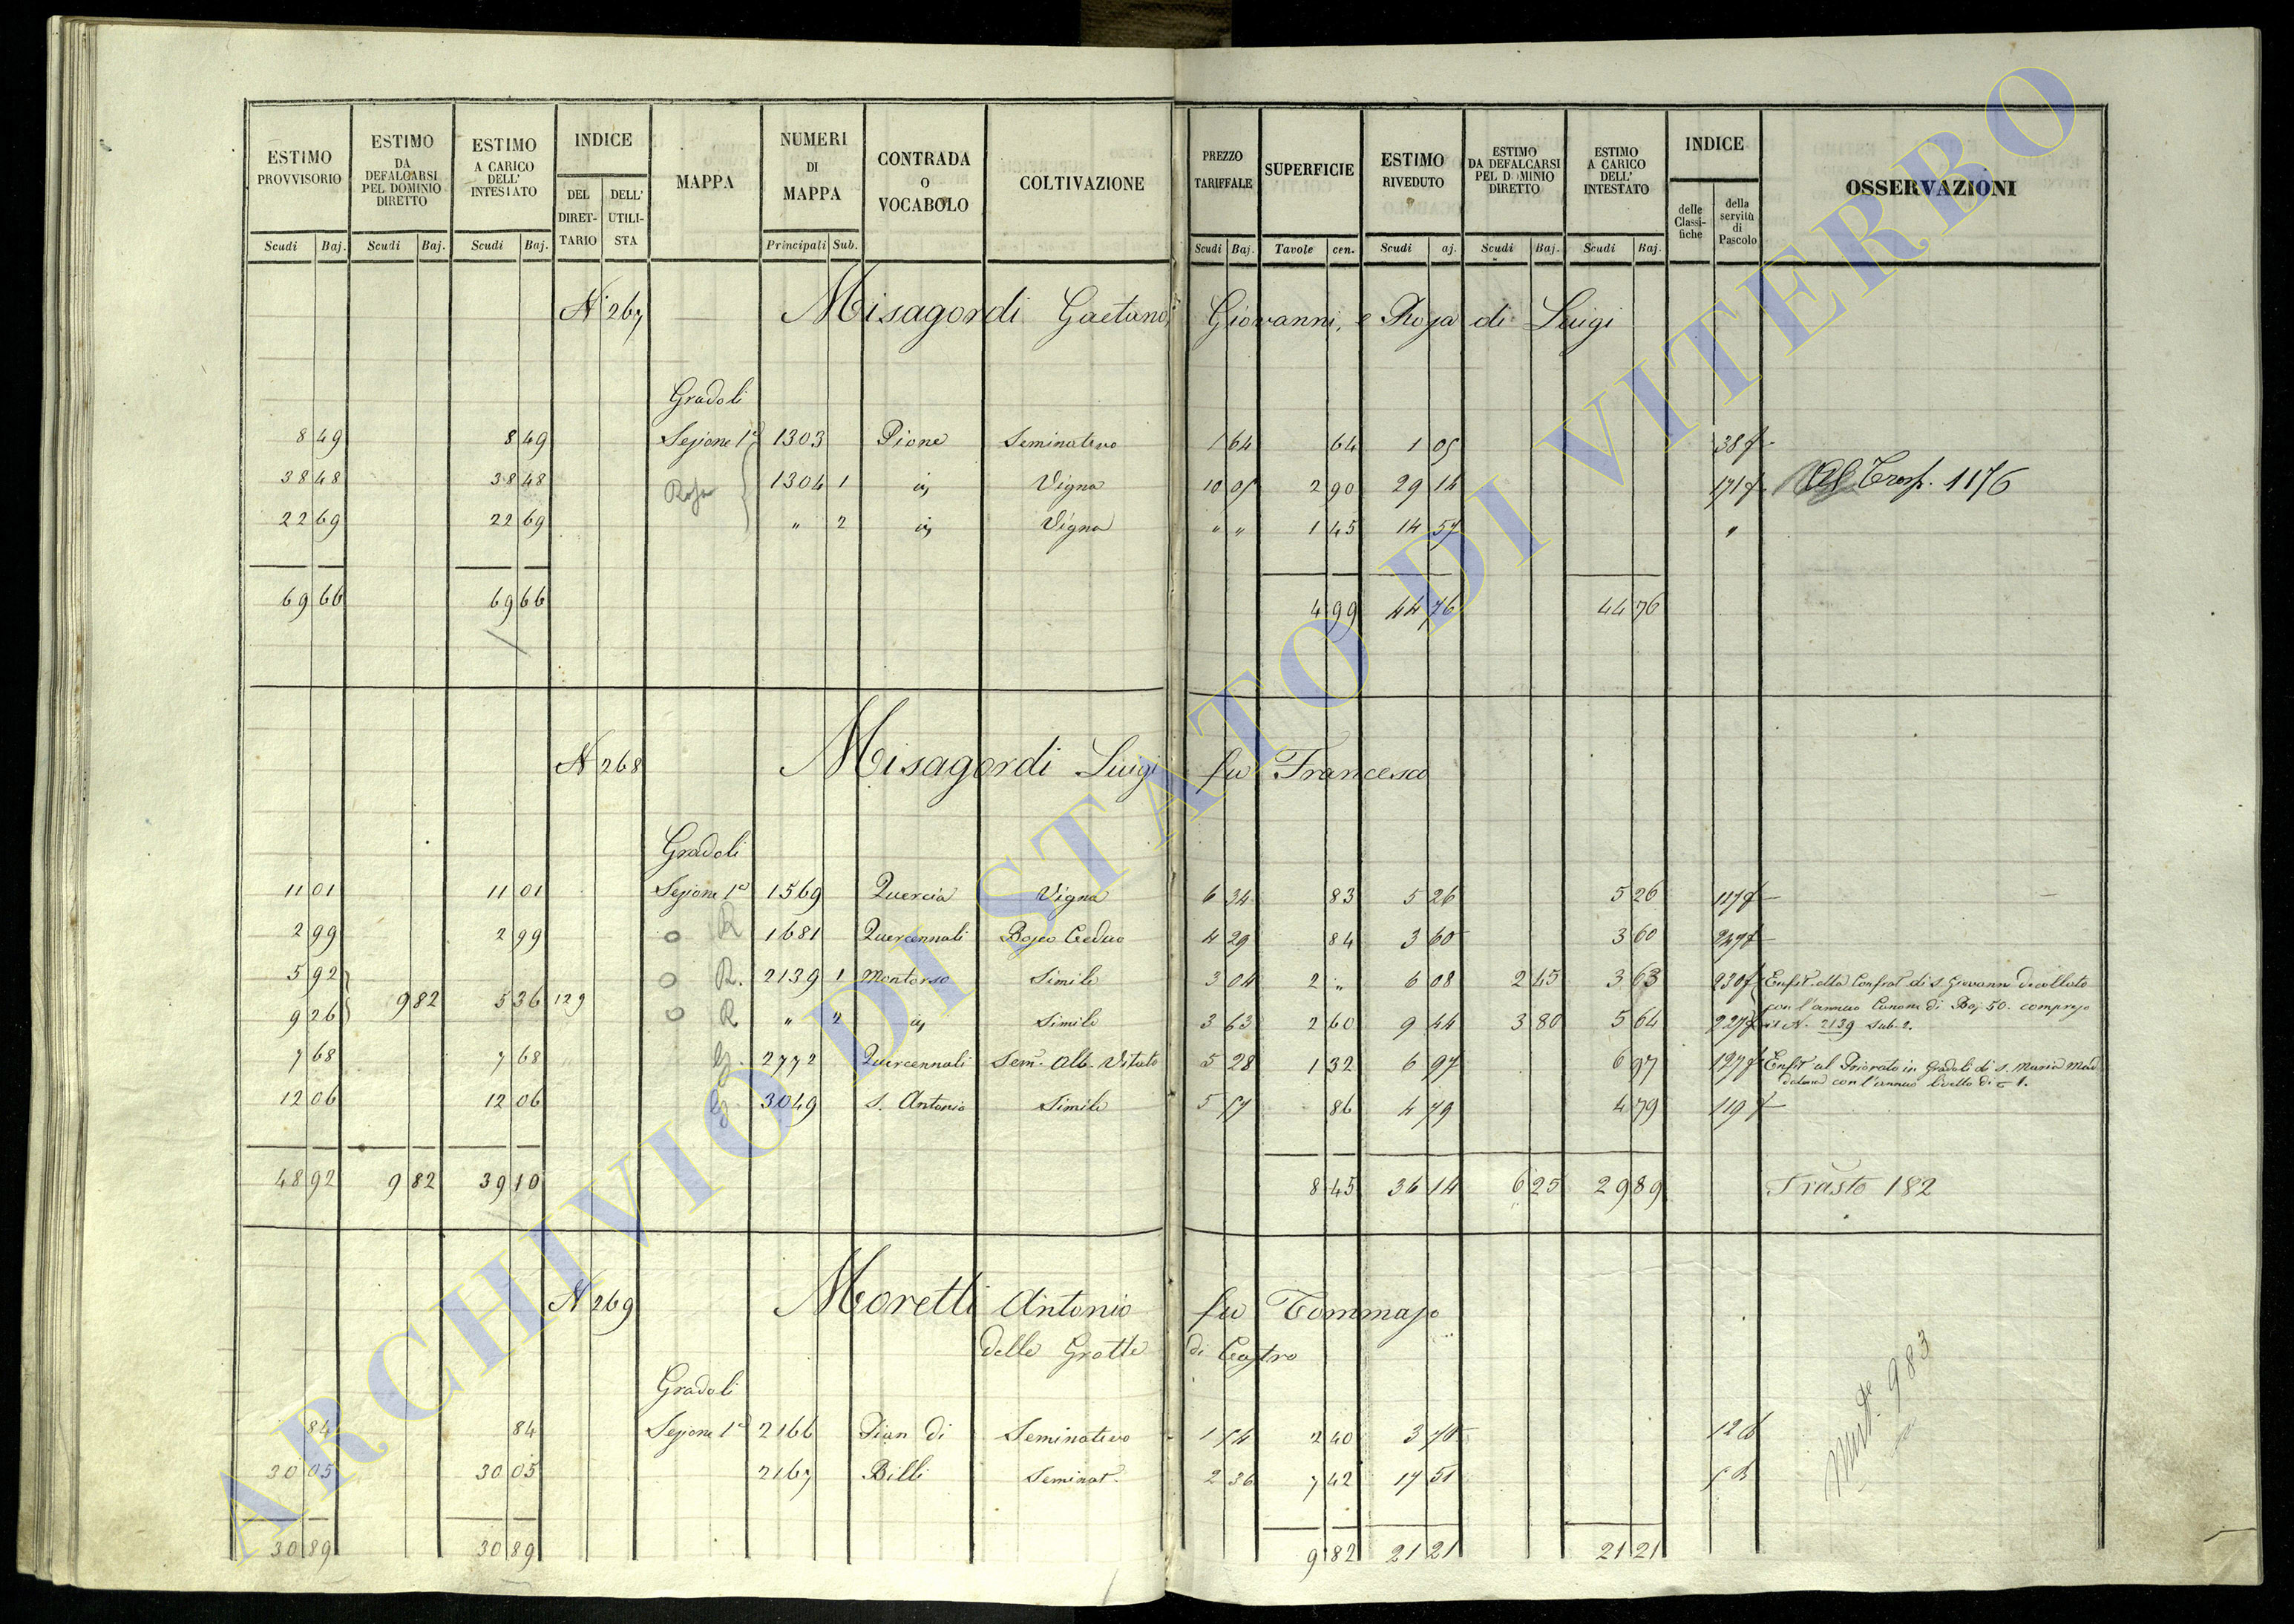 ESTIMO PROVVISORIO | ESTIMO DA DEFALCARSI PEL DOMINIO DIRETTO | ESTIMO A CARICO DELL' INTESTATO | INDICE | MAPPA | NUMERI DI MAPPA | CONTRADA O VOCABOLO | COLTIVAZIONE | PREZZO TARIFFALE | SUPERFICIE | ESTIMO RIVEDUTO | ESTIMO DA DEFALCARSI PEL DOMINIO DIRETTO | ESTIMO A CARICO DELL' INTESTATO | INDICE | OSSERVAZIONI
DEL DIRETTARIO | DELL' UTILISTA | delle Classifiche | della servitù di Pascolo
Scudi | Baj. | Scudi | Baj. | Scudi | Baj. | Principali | Sub. | Scudi | Baj. | Tavole | cen. | Scudi | aj. | Scudi | Baj. | Scudi | Baj.
N. 267 Misagordi Gaetano, Giovanni, e Rosa di Luigi
Gradoli
8 49 | 8 49 | Sezione 1a | 1303 | Pione | Seminativo | 1 64 | 64 | 1 05 | 38
38 48 | 38 48 | Rosa | 1304 | 1 | id | Vigna | 10 05 | 2 90 | 29 14 | 171 | Trasp. 1176
22 69 | 22 69 | " | 2 | id | Vigna | " " | 1 45 | 14 57 | "
69 66 | 69 66 | 4 99 | 44 76 | 44 76
N 268 Misagordi Luigi fu Francesco
Gradoli
11 01 | 11 01 | Sezione 1a | 1569 | Quercia | Vigna | 6 34 | 83 | 5 26 | 5 26 | 117
2 99 | 2 99 | O R | 1681 | Quercennali | Bosco Ceduo | 4 29 | 84 | 3 60 | 3 60 | 247
5 92 | O R. | 2139 | 1 | Montorso | Simile | 3 04 | 2 " | 6 08 | 2 45 | 3 63 | 230 | Enfit. alla Confrat. di S. Giovanni Decollato
9 82 | 5 36 | 129 | con l'annuo Canone di Baj. 50. compreso
9 26 | O R | " | 2 | id | Simile | 3 63 | 2 60 | 9 44 | 3 80 | 5 64 | 227 | il N. 2139 sub. 2.
7 68 | 7 68 | G. | 2772 | Quercennali | Sem. Alb. Vitato | 5 28 | 1 32 | 6 97 | 6 97 | 127 | Enfit. al Priorato in Gradoli di S. Maria Mad
dalena con l'annuo livello di 1.
12 06 | 12 06 | G. | 3049 | S. Antonio | Simile | 5 57 | 86 | 4 79 | 4 79 | 119
48 92 | 9 82 | 39 10 | 8 45 | 36 14 | 6 25 | 29 89 | Trasto 182
N 269 Moretti Antonio fu Tommaso
delle Grotte di Castro
Gradoli
84 | 84 | Sezione 1a | 2166 | Pian di | Seminativo | 1 54 | 2 40 | 3 70 | 12
30 05 | 30 05 | 2167 | Billi | Seminat. | 2 36 | 7 42 | 17 51
30 89 | 30 89 | 9 82 | 21 21 | 21 21
983
ARCHIVIO DI STATO DI VITERBO